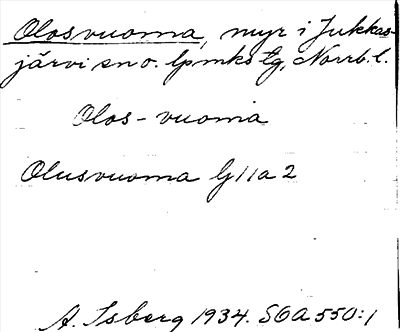 Olosvuoma, myr i Jukkas-
järvi sn o. lpmks tg, Norrb. l.
Olos-vuoma
Olusvuoma G 11 a 2
A. Isberg 1934. SOA 550:1